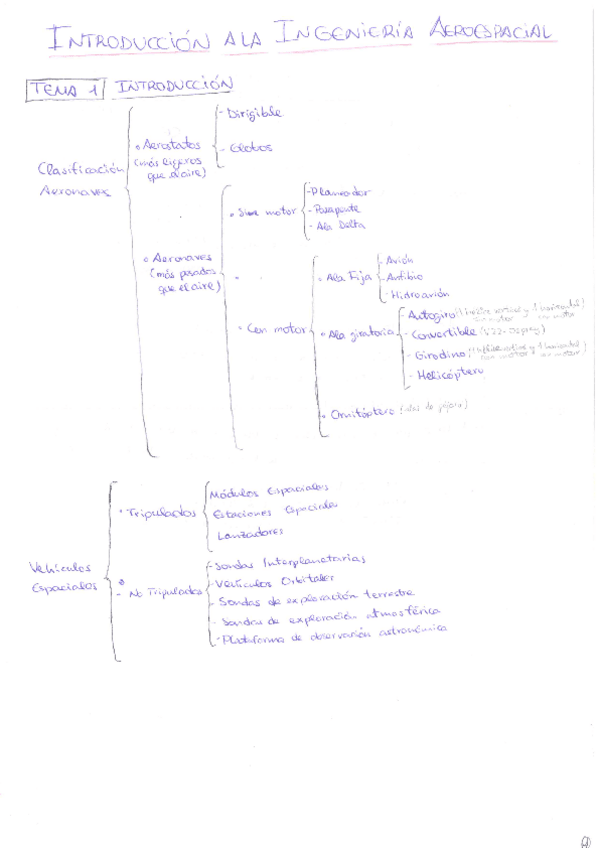 INTRODUCCIÓN A LA INGENIERÍA AEROESPACIAL
TEMA 1 INTRODUCCIÓN
Clasificación
Aeronaves
• Aerostatos
(más ligeros
que el aire)
- Dirigible
- Globos
• Aeronaves
(más pesados
que el aire)
• Sin motor
- Planeador
- Parapente
- Ala Delta
• Con motor
• Ala Fija
- Avión
- Anfibio
- Hidroavión
• Ala giratoria
- Autogiro (1 hélice vertical y 1 horizontal)
sin motor con motor
- Convertible (V22-Osprey)
- Girodino (1 hélice vertical y 1 horizontal
con motor
- Helicóptero
• Ornitóptero (alas de pájaro)
Vehículos
Espaciales
• Tripulados
Módulos Espaciales
Estaciones Espaciales
Lanzadores
- No Tripulados
- Sondas Interplanetarias
- Vehículos Orbitales
- Sondas de exploración terrestre
- Sondas de exploración atmosférica
- Plataforma de observación astronómica